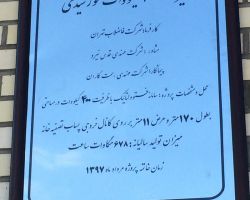 کارفرما: شرکت فاضلاب تهران
مشاور: شرکت مهندسی قدس نیرو
پیمانکار: شرکت مهندسی
محل و مشخصات پروژه: سامانه فتوولتائیک با ظرفیت ۴۰۰ کیلووات در مساحتی
بطول ۱۷۰ متر و عرض ۱۱ متر بر روی کانال خروجی پساب تصفیه خانه
میزان تولید سالیانه: ۶۷۸ مگاوات ساعت
زمان خاتمه پروژه مرداد ماه ۱۳۹۷